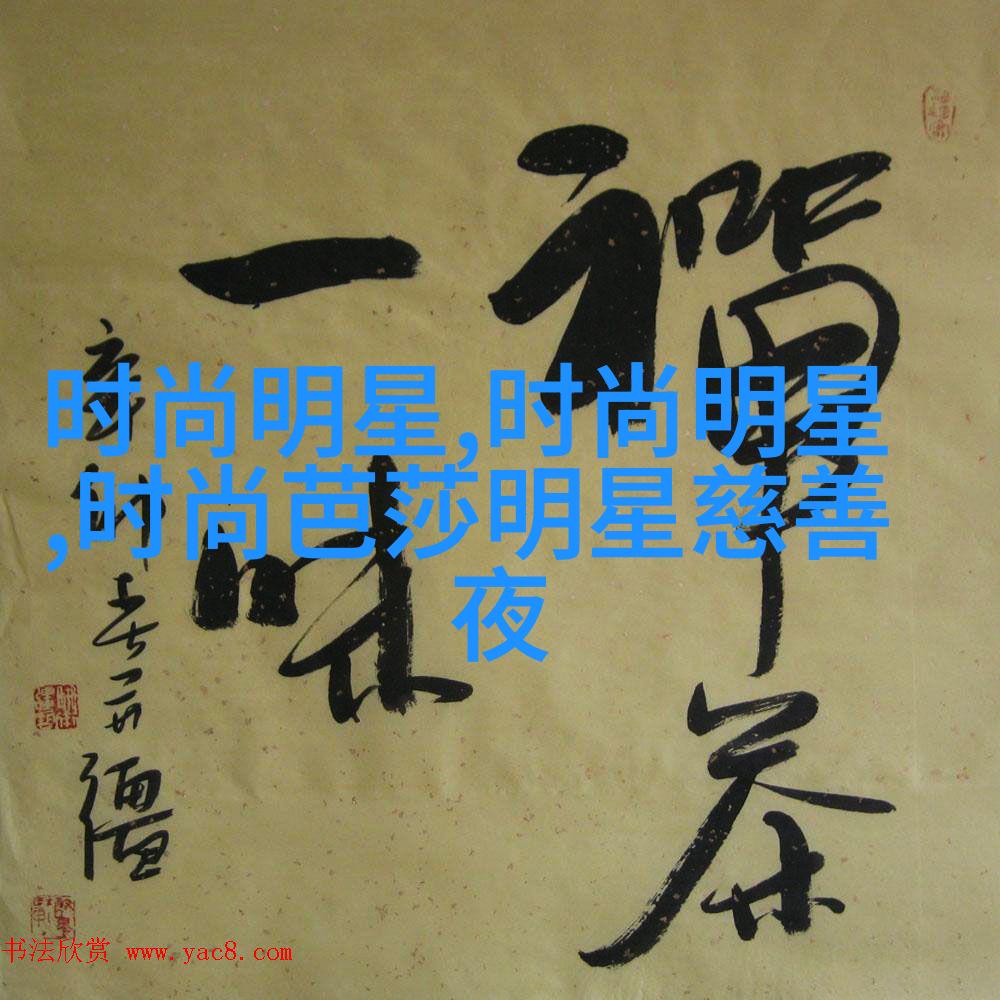 禪茶
一味
时尚明星,时尚明星
,时尚芭莎明星慈善
夜
书法欣赏 www.yac8.com